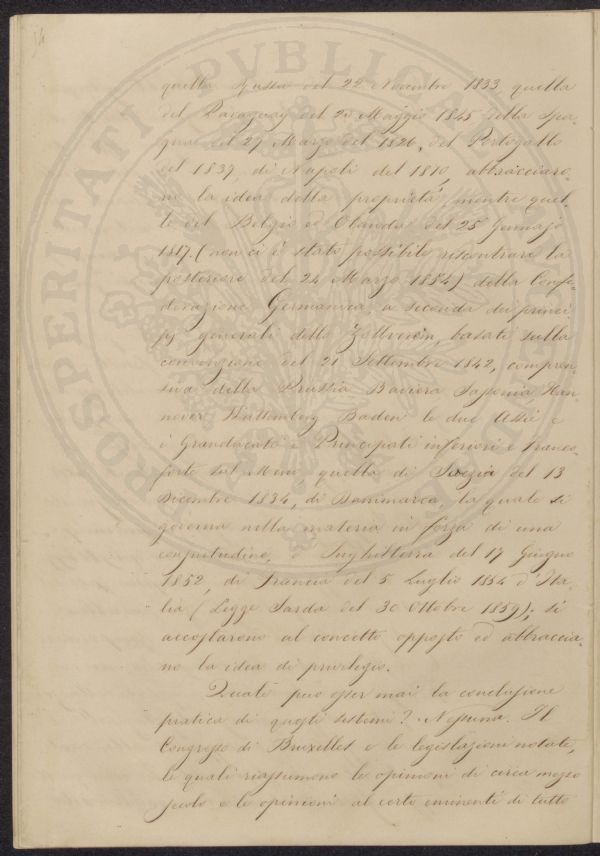 14
PROSPERITATI PVBLICAE
quella Russa del 22 Novembre 1833, quella
del Paraguay del 20 Maggio 1845 della Spa-
gna del 27 Marzo del 1826, del Portogallo
del 1837, di Napoli del 1810, abbracciaro-
no la idea della proprietà, mentre quel-
le del Belgio ed Olanda del 25 Gennajo
1817. (non ci è stato possibile riscontrare la
posteriore del 24 Marzo 1854) della Confe-
derazione Germanica a seconda dei princi-
pj generali dello Zollverein, basati sulla
convenzione del 21 Settembre 1842, compren-
siva della Prussia Baviera Sassonia Han-
nover Wurttemberg Baden le due Assie e
i Granducati e Principati inferiori e Franco-
forte sul Meno, quella di Svezia del 13
Dicembre 1834, di Danimarca, la quale si
governa nella materia in forza di una
consuetudine, d'Inghilterra del 1º Giugno
1852, di Francia del 5 Luglio 1854 d'Ita-
lia (Legge Sarda del 30 Ottobre 1859); si
accostarono al concetto opposto ed abbraccia-
no la idea di privilegio.
Quale può esser mai la conclusione
pratica di questi sistemi? Nessuna. Il
Congresso di Bruxelles e le legislazioni notate,
le quali riassumono le opinioni di circa mezzo
secolo e le opinioni al certo eminenti di tutto